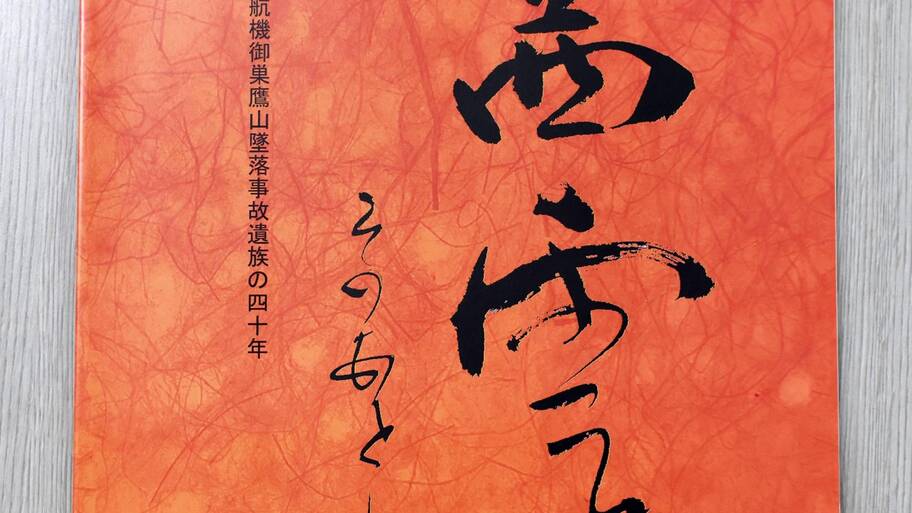 茜雲
そのあとし
航機御巣鷹山墜落事故遺族の四十年